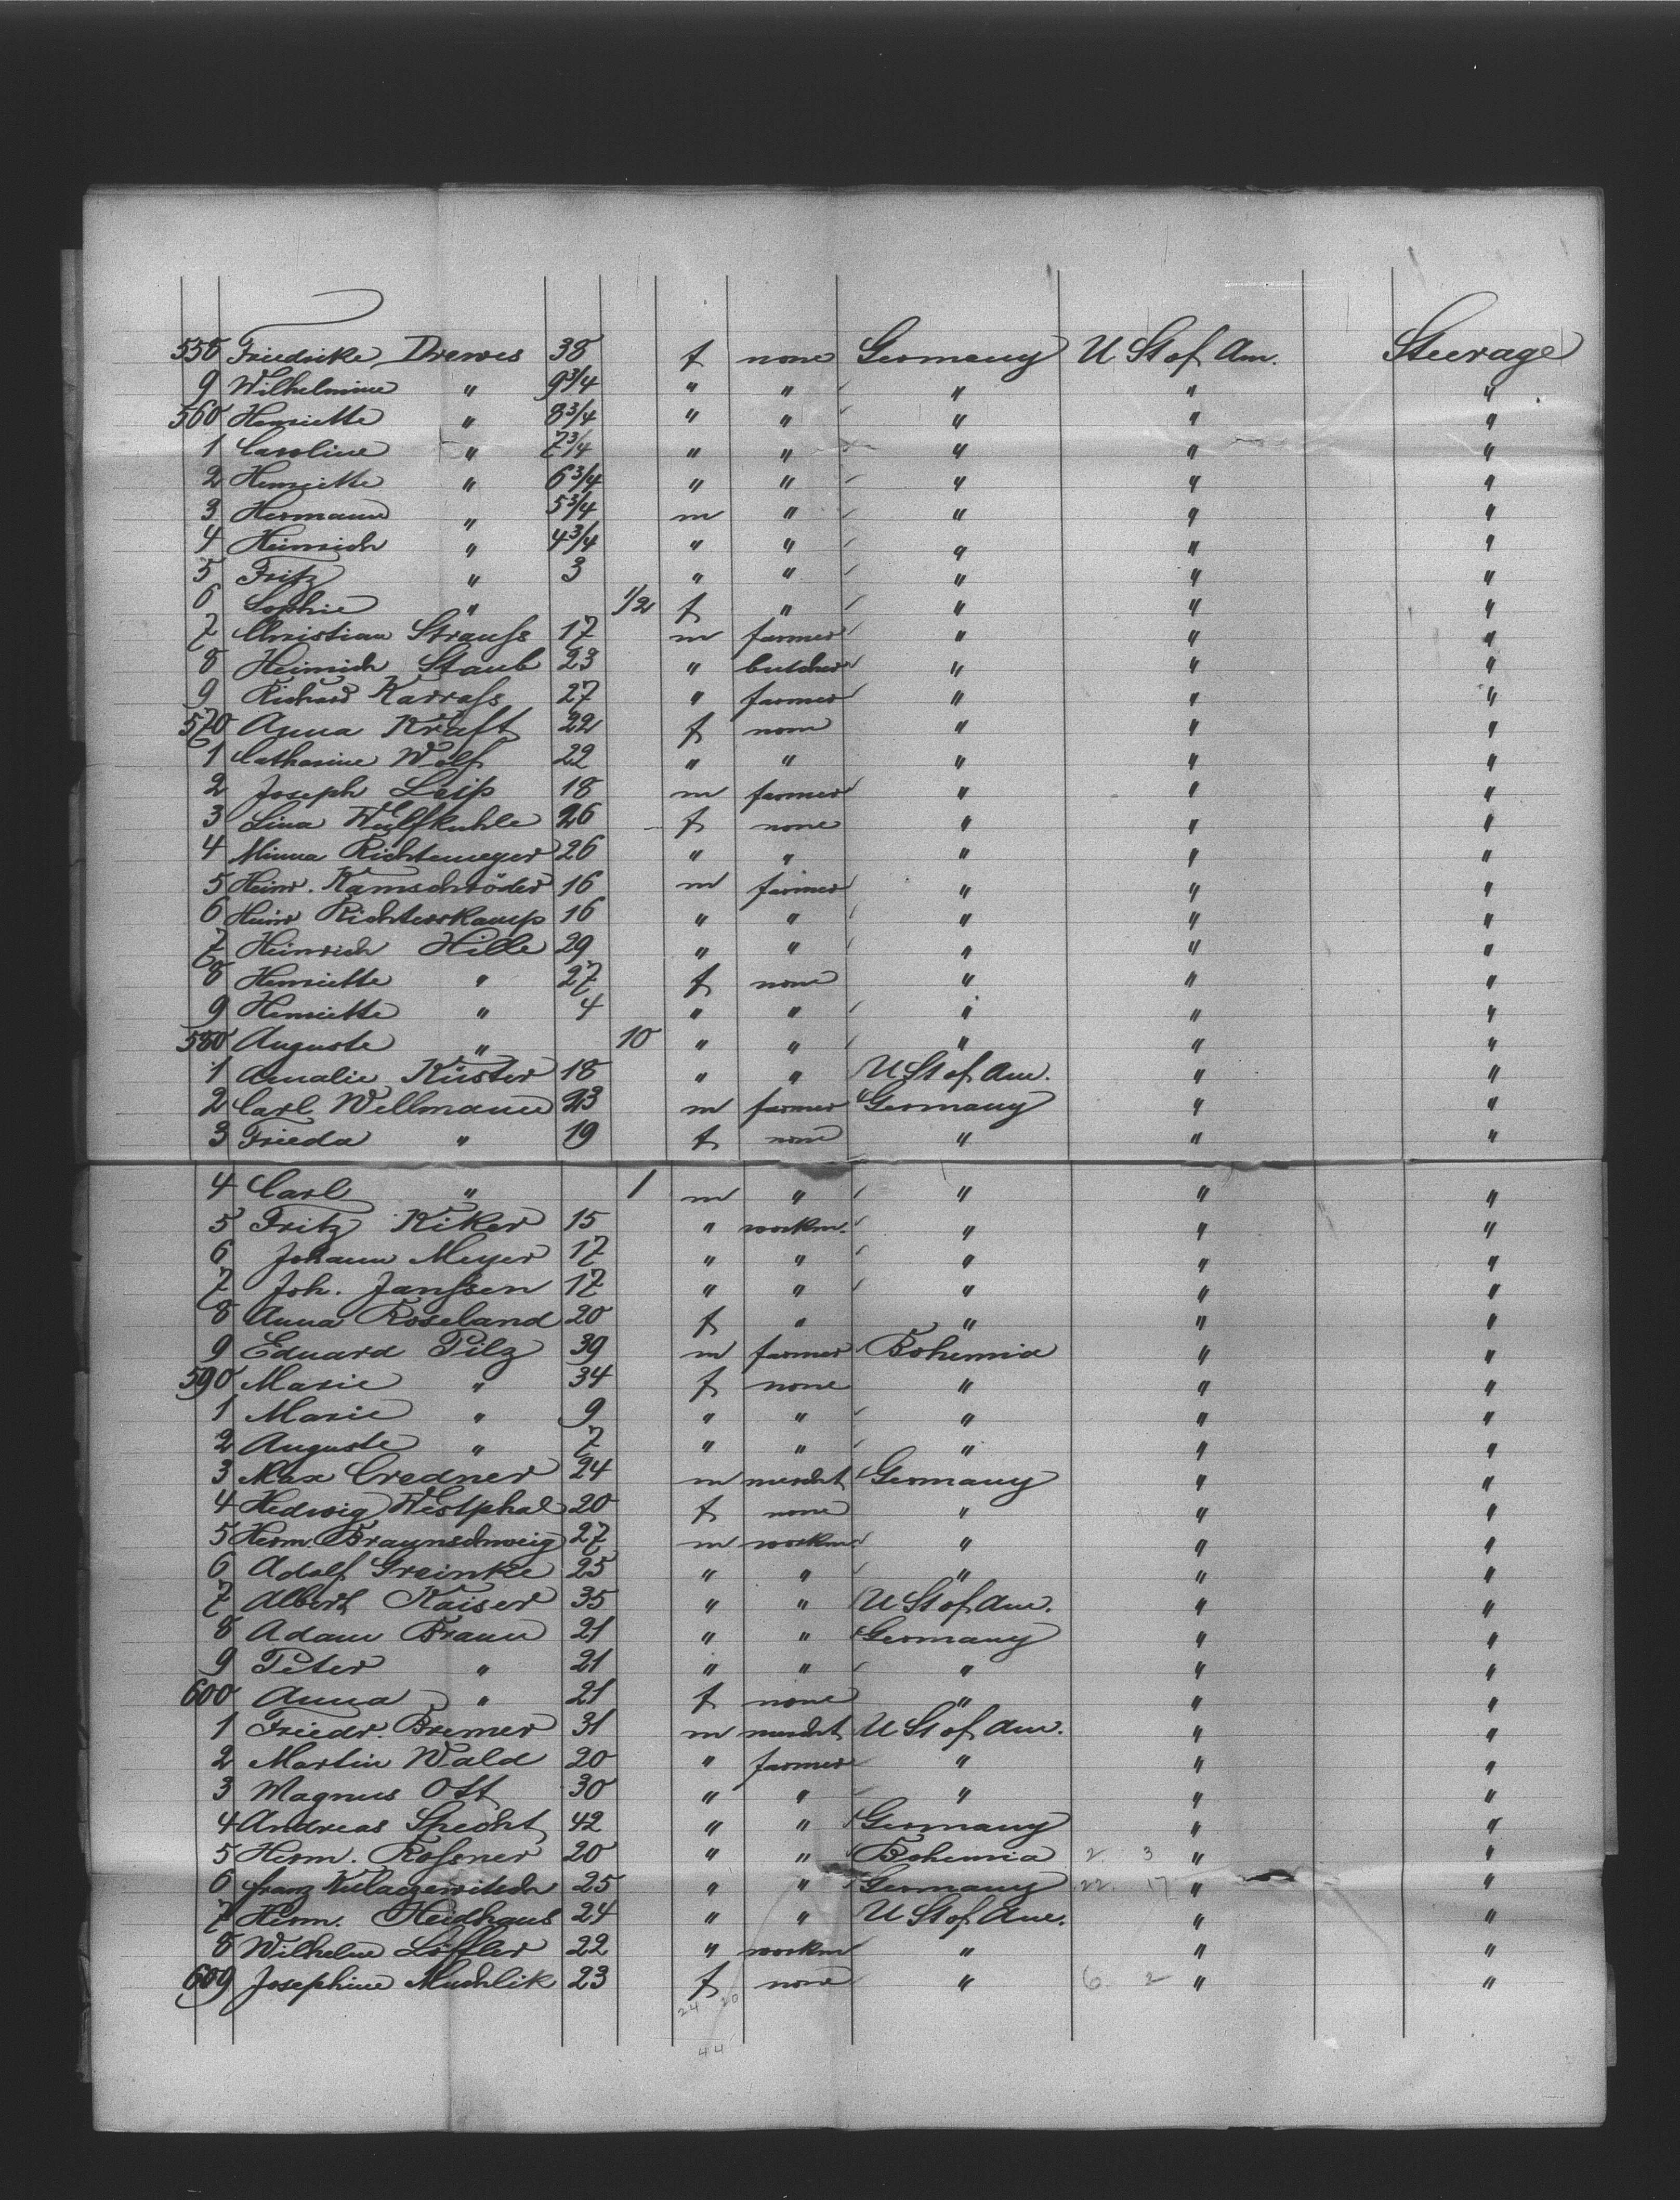 558 Friedricke Drewes 38 f none Germany U St of Am. Steerage
9 Wilhelmine " 9 3/4 " " " " "
560 Henriette " 8 3/4 " " " " "
1 Caroline " 7 3/4 " " " " "
2 Henriette " 6 3/4 " " " " "
3 Hermann " 5 3/4 m " " " "
4 Heinrich " 4 3/4 " " " " "
5 Fritz " 3 " " " " "
6 Sophie " 1/2 f " " " "
7 Christian Strauſs 17 m farmer " " "
8 Heinrich Staub 23 " butcher " " "
9 Richard Karraſs 27 " farmer " " "
570 Anna Kraft 22 f none " " "
1 Catharine Wolf 22 " " " " "
2 Joseph Leip 18 m farmer " " "
3 Lina Wulfkuhle 26 f none " " "
4 Minna Richtemeyer 26 " " " " "
5 Heinr. Kamschröder 16 m farmer " " "
6 Heinr Richterskamp 16 " " " " "
7 Heinrich Hille 29 " " " " "
8 Henriette " 27 f none " " "
9 Henriette " 4 " " " " "
580 Auguste " 10 " " " " "
1 Amalie Küster 18 " " U St of Am. " "
2 Carl Wellmann 23 m farmer Germany " "
3 Frieda " 19 f none " " "
4 Carl " 1 m " " " "
5 Fritz Kiker 15 " workm. " " "
6 Johann Meyer 17 " " " " "
7 Joh. Janſsen 17 " " " " "
8 Anna Roseland 20 f " " " "
9 Eduard Pilz 39 m farmer Bohemia " "
590 Marie " 34 f none " " "
1 Marie " 9 " " " " "
2 Auguste " 7 " " " " "
3 Max Credner 24 m mercht Germany " "
4 Hedwig Westphal 20 f none " " "
5 Herm. Braunschweig 27 m workm " " "
6 Adolf Greinke 25 " " " " "
7 Albert Kaiser 35 " " U St of Am. " "
8 Adam Braun 21 " " Germany " "
9 Peter " 21 " " " " "
600 Anna " 21 f none " " "
1 Friedr. Bremer 31 m mercht U St of Am. " "
2 Martin Wald 20 " farmer " " "
3 Magnus Ott 30 " " " " "
4 Andreas Specht 42 " " Germany " "
5 Herm. Roſsner 20 " " Bohemia 2. 3 " "
6 Franz 25 " " Germany 22. 17 " "
7 Herm. Heidhaus 24 " " U St of Am. " "
8 Wilhelm Löffler 22 " workm " " "
609 Josephine Muchlik 23 f none " 6. 2 " "
24 20
44